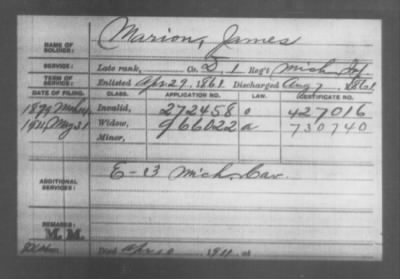 NAME OF SOLDIER: Marion, James
SERVICE: Late rank, Co. D, 1 Reg't Mich Inf.
TERM OF SERVICE: Enlisted Apr 29, 1861 Discharged Aug 7, 1861
DATE OF FILING. CLASS. APPLICATION NO. LAW. CERTIFICATE NO.
Invalid, 272458 427016
Widow, 966022 a 730740
Minor,
ADDITIONAL SERVICES: E-13 Mich. Cav.
REMARKS:
M. M.
Died Apr 10 1911, at